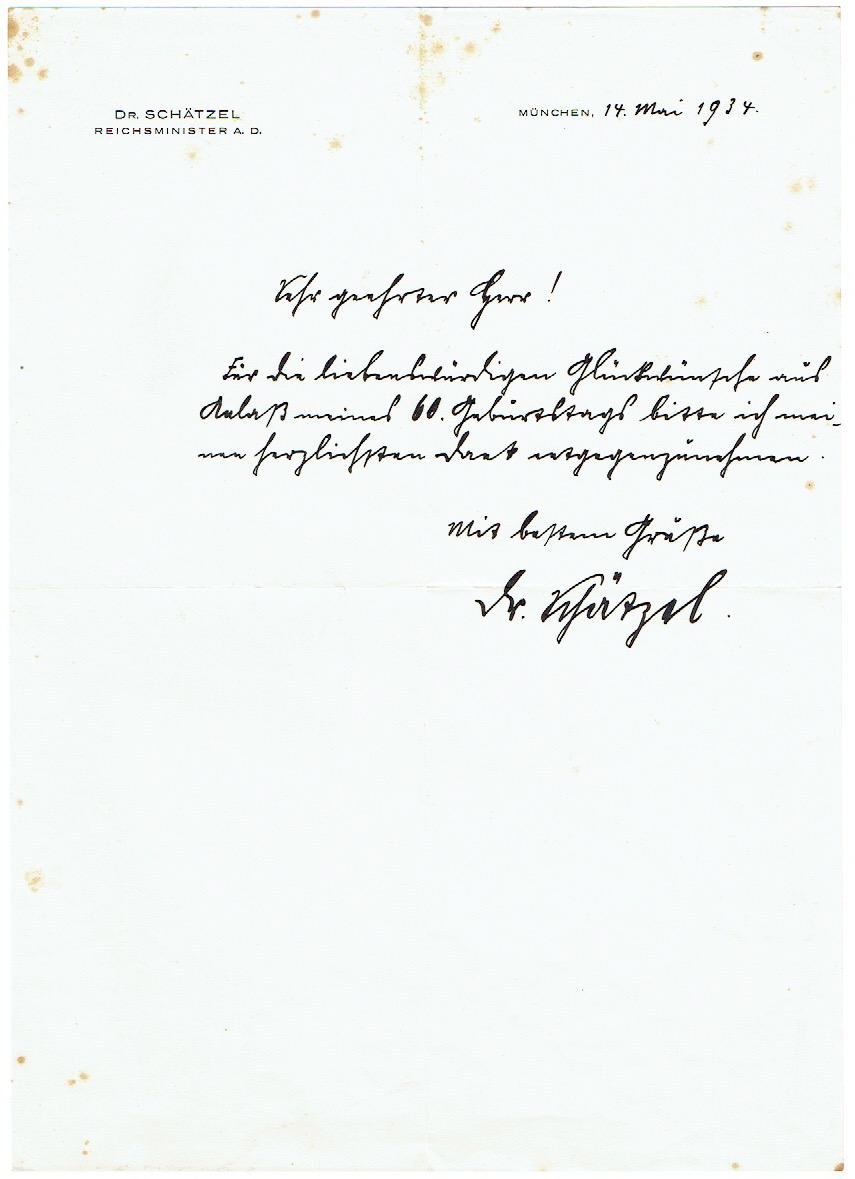 DR. SCHÄTZEL
REICHSMINISTER A. D.
MÜNCHEN, 14. Mai 1934.
Sehr geehrter Herr!
Für die liebenswürdigen Glückwünsche aus
Anlaß meines 60. Geburtstags bitte ich mei-
nen herzlichsten Dank entgegenzunehmen.
Mit bestem Gruße
Dr. Schätzel.